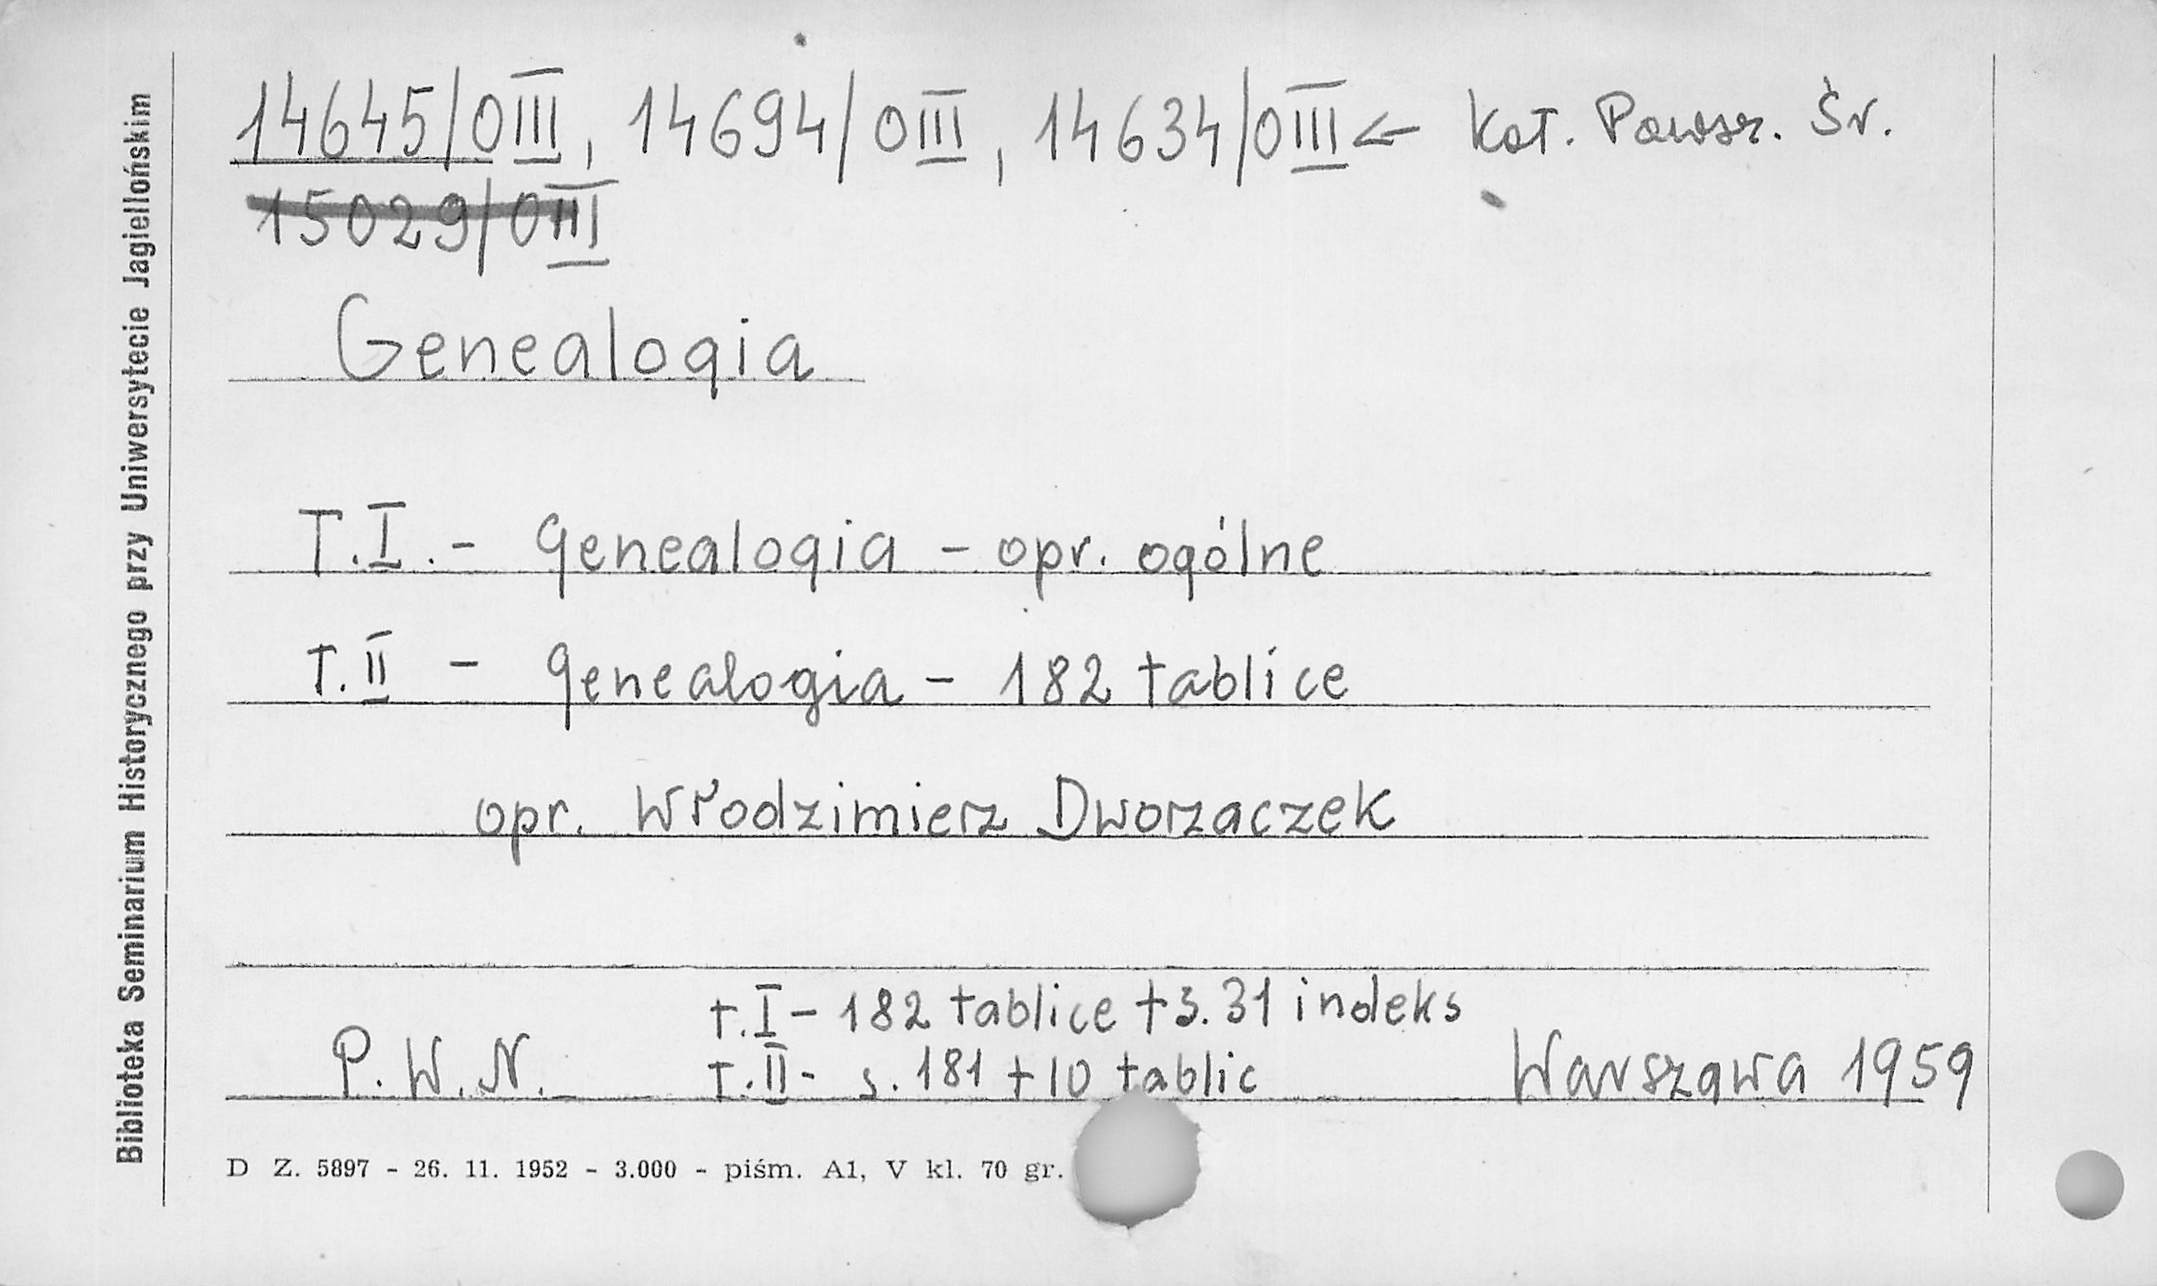 Biblioteka Seminarium Historycznego przy Uniwersytecie Jagiellońskim
14645/OIII, 14694/OIII, 14634/OIII ← Kat. Powsz. Śr.
15029/OIII
Genealogia
T.I. - Genealogia - opr. ogólne
T.II - Genealogia - 182 tablice
opr. Włodzimierz Dworzaczek
t.I - 182 tablice + s. 31 indeks
P.W.N. T.II - s. 181 + 10 tablic Warszawa 1959
D Z. 5897 - 26. 11. 1952 - 3.000 - piśm. A1, V kl. 70 gr.